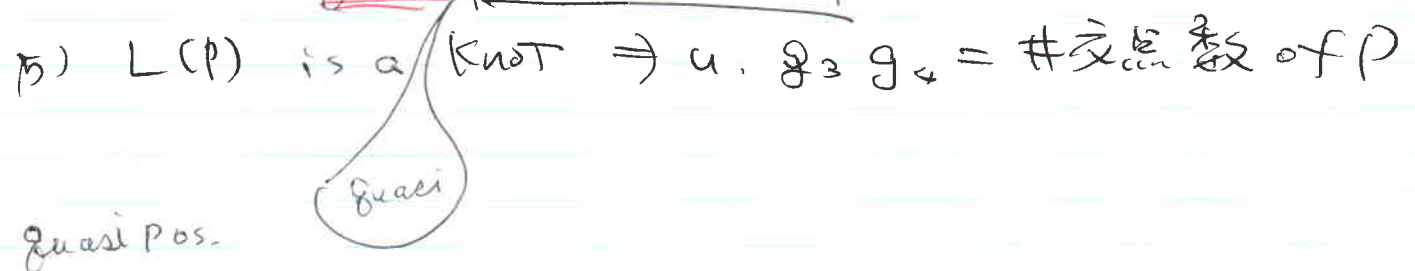 5) L(P) is a Knot ⇒ u. g₃ g₄ = #交点数 of P
quasi
quasi pos.